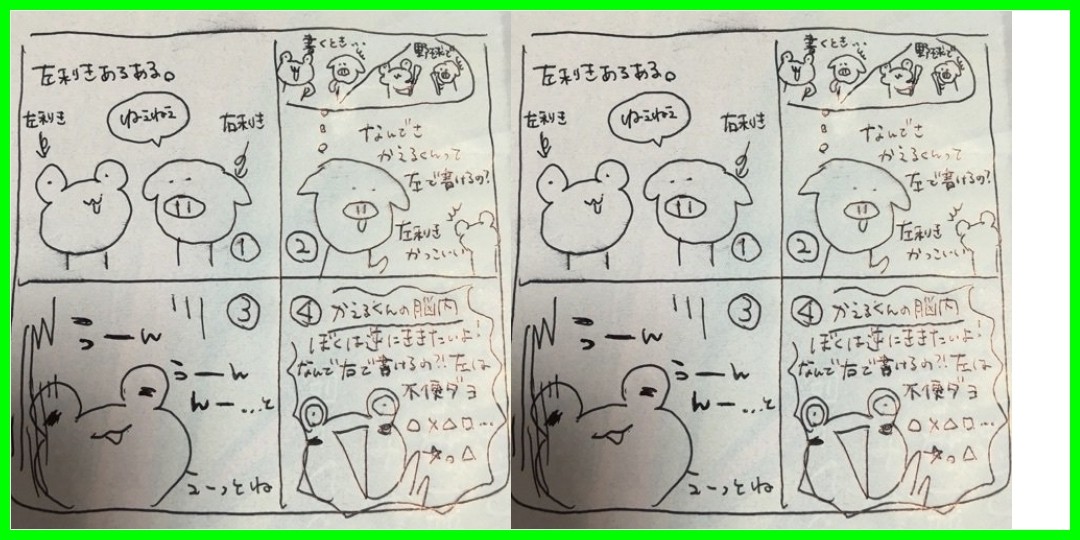 左利きあるある。
左利き
ねぇねぇ
右利き
①
書くとき…
野球で
なんでさ
かえるくんって
左で書けるの?
左利き
かっこいい
②
③
うーん
うーん
んー…と
えーっとね
④ かえるくんの脳内
ぼくは逆にききたいよ!
なんで右で書けるの?!左は
不便ダヨ
○×△□…
☆っ△
左利きあるある。
左利き
ねぇねぇ
右利き
①
書くとき…
野球で
なんでさ
かえるくんって
左で書けるの?
左利き
かっこいい
②
③
うーん
うーん
んー…と
えーっとね
④ かえるくんの脳内
ぼくは逆にききたいよ!
なんで右で書けるの?!左は
不便ダヨ
○×△□…
☆っ△